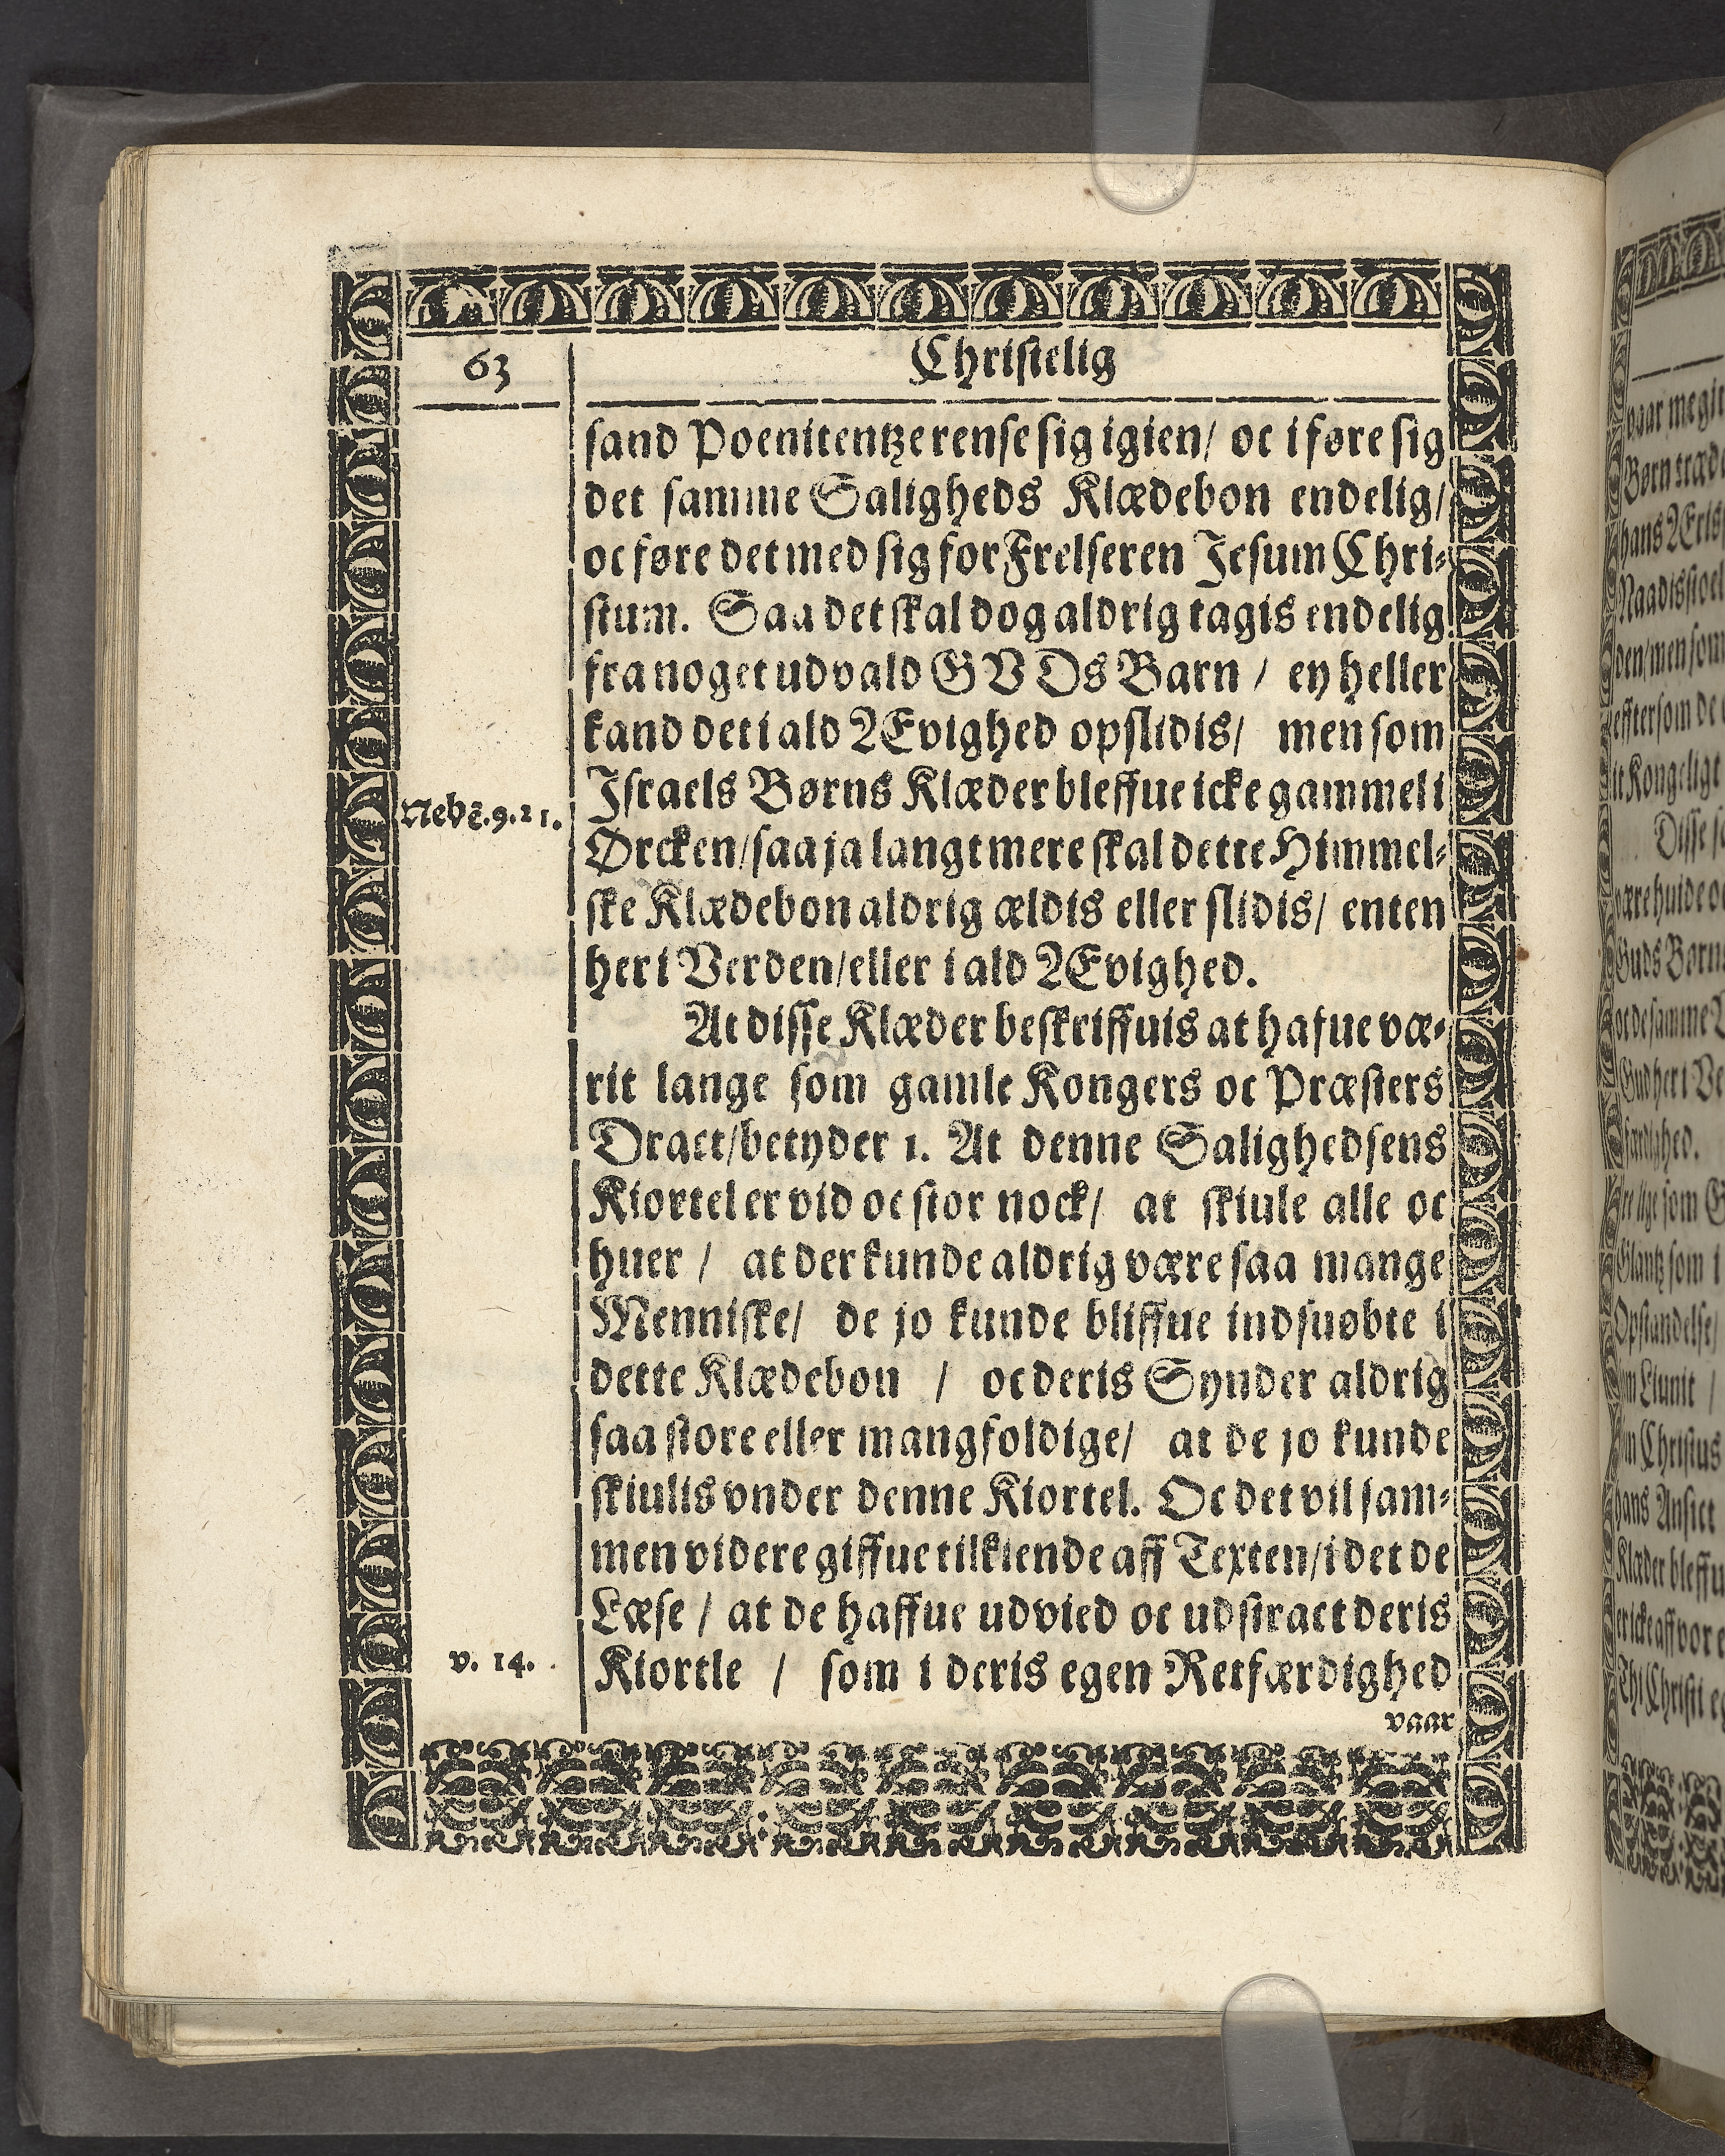 63
Christelig
sand Poenitentze rense sig igien/ oc iføre sig
det samme Saligheds Klædebon endelig/
oc føre det med sig for Frelseren Jesum Chri-
stum. Saa det skal dog aldrig tagis endelig
fra noget udvald GVDs Barn / ey heller
kand det i ald Ævighed opslidis/ men som
Israels Børns Klæder bleffue icke gammel i
Nehē.9.21.
Ørcken/saa ja langt mere skal dette Himmel-
ske Klædebon aldrig ældis eller slidis/ enten
her i Verden/eller i ald Ævighed.
At disse Klæder beskriffuis at hafue væ-
rit lange som gamle Kongers oc Præsters
Dract/betyder 1. At denne Salighedsens
Kiortel er vid oc stor nock/ at skiule alle oc
huer / at der kunde aldrig være saa mange
Menniske/ de jo kunde bliffue indsuøbte i
dette Klædebon / oc deris Synder aldrig
saa store eller mangfoldige/ at de jo kunde
skiulis vnder denne Kiortel. Oc det vil sam-
men videre giffue tilkiende aff Texten/i det de
Læse / at de haffue udvied oc udstract deris
v. 14.
Kiortle / som i deris egen Retfærdighed
vaar